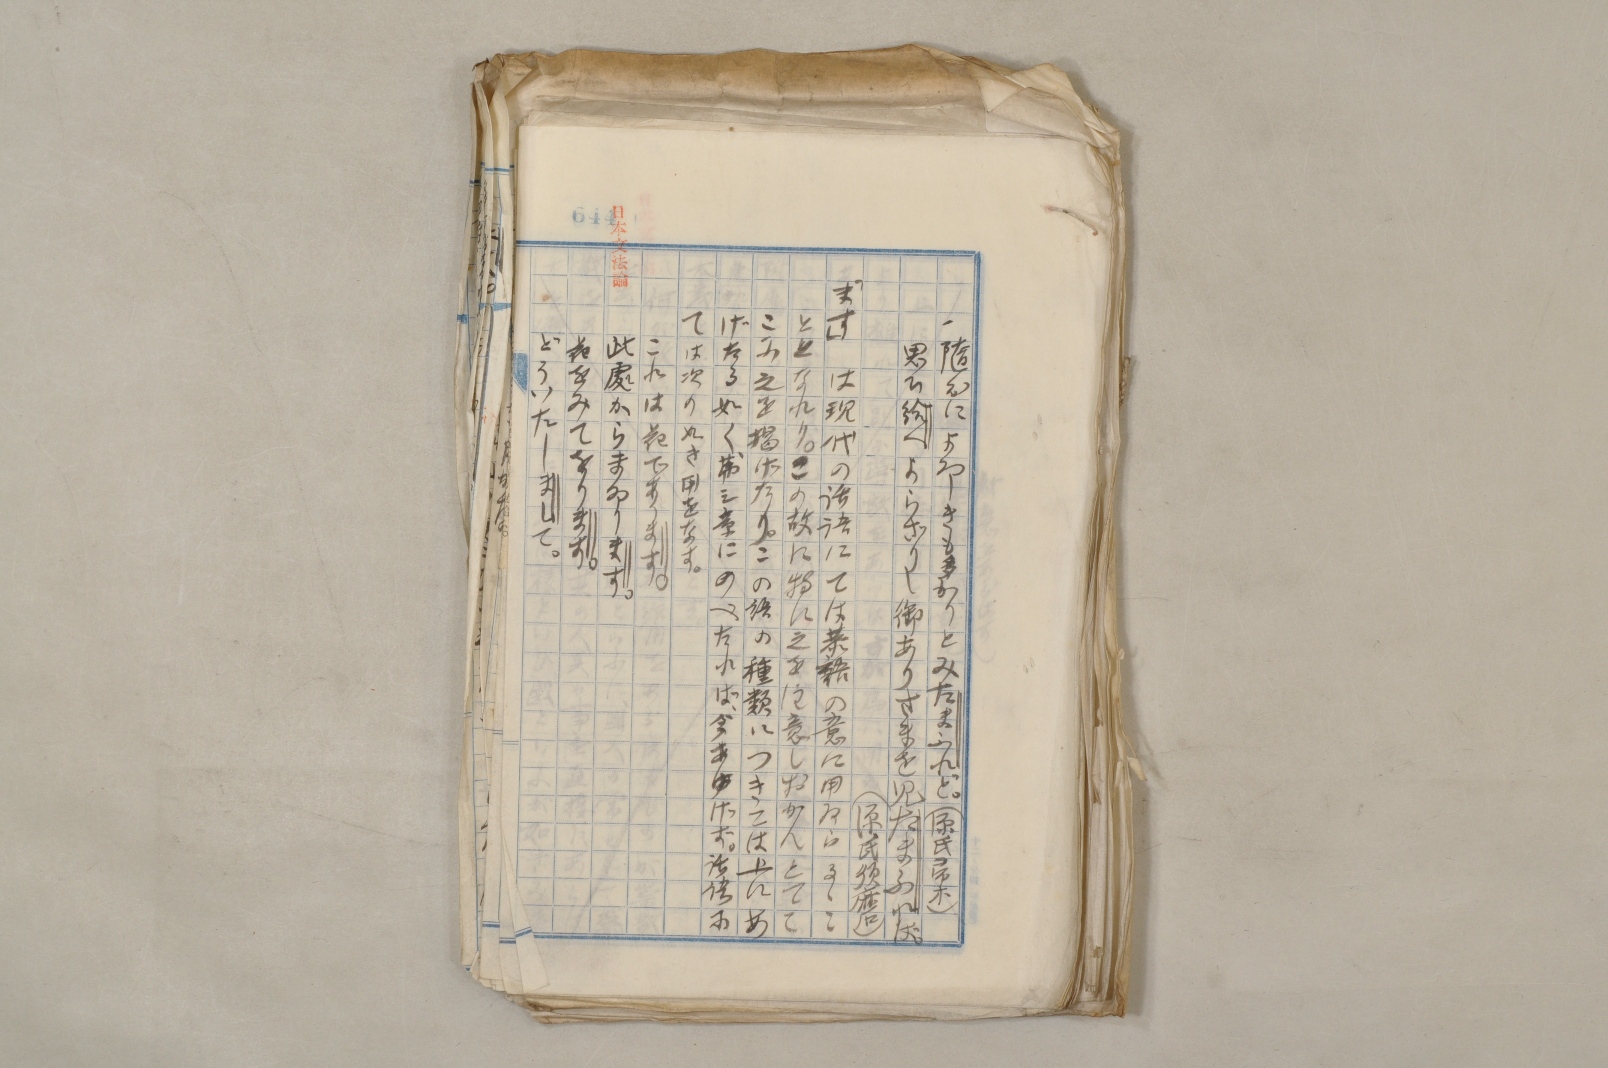 644
日本文法論
一隨分によろしきも多かりとみたまふれど。(源氏帚木)
思ひ給へよらざりし御ありさまを見たまふれば。
(源氏須磨)
「ます」は現代の話語にては恭敬の意に用ゐらるゝこ
ととなれり。この故に特に之を注意しおかんとてて
こゝに之を揭げたり。この語の種類につきては上にあ
げたる如く第三章にのべたれば、今あげず。話語に
ては次の如き用をなす。
これは花であります。
此處からまゐります。
花をみてをります。
どういたしまして。